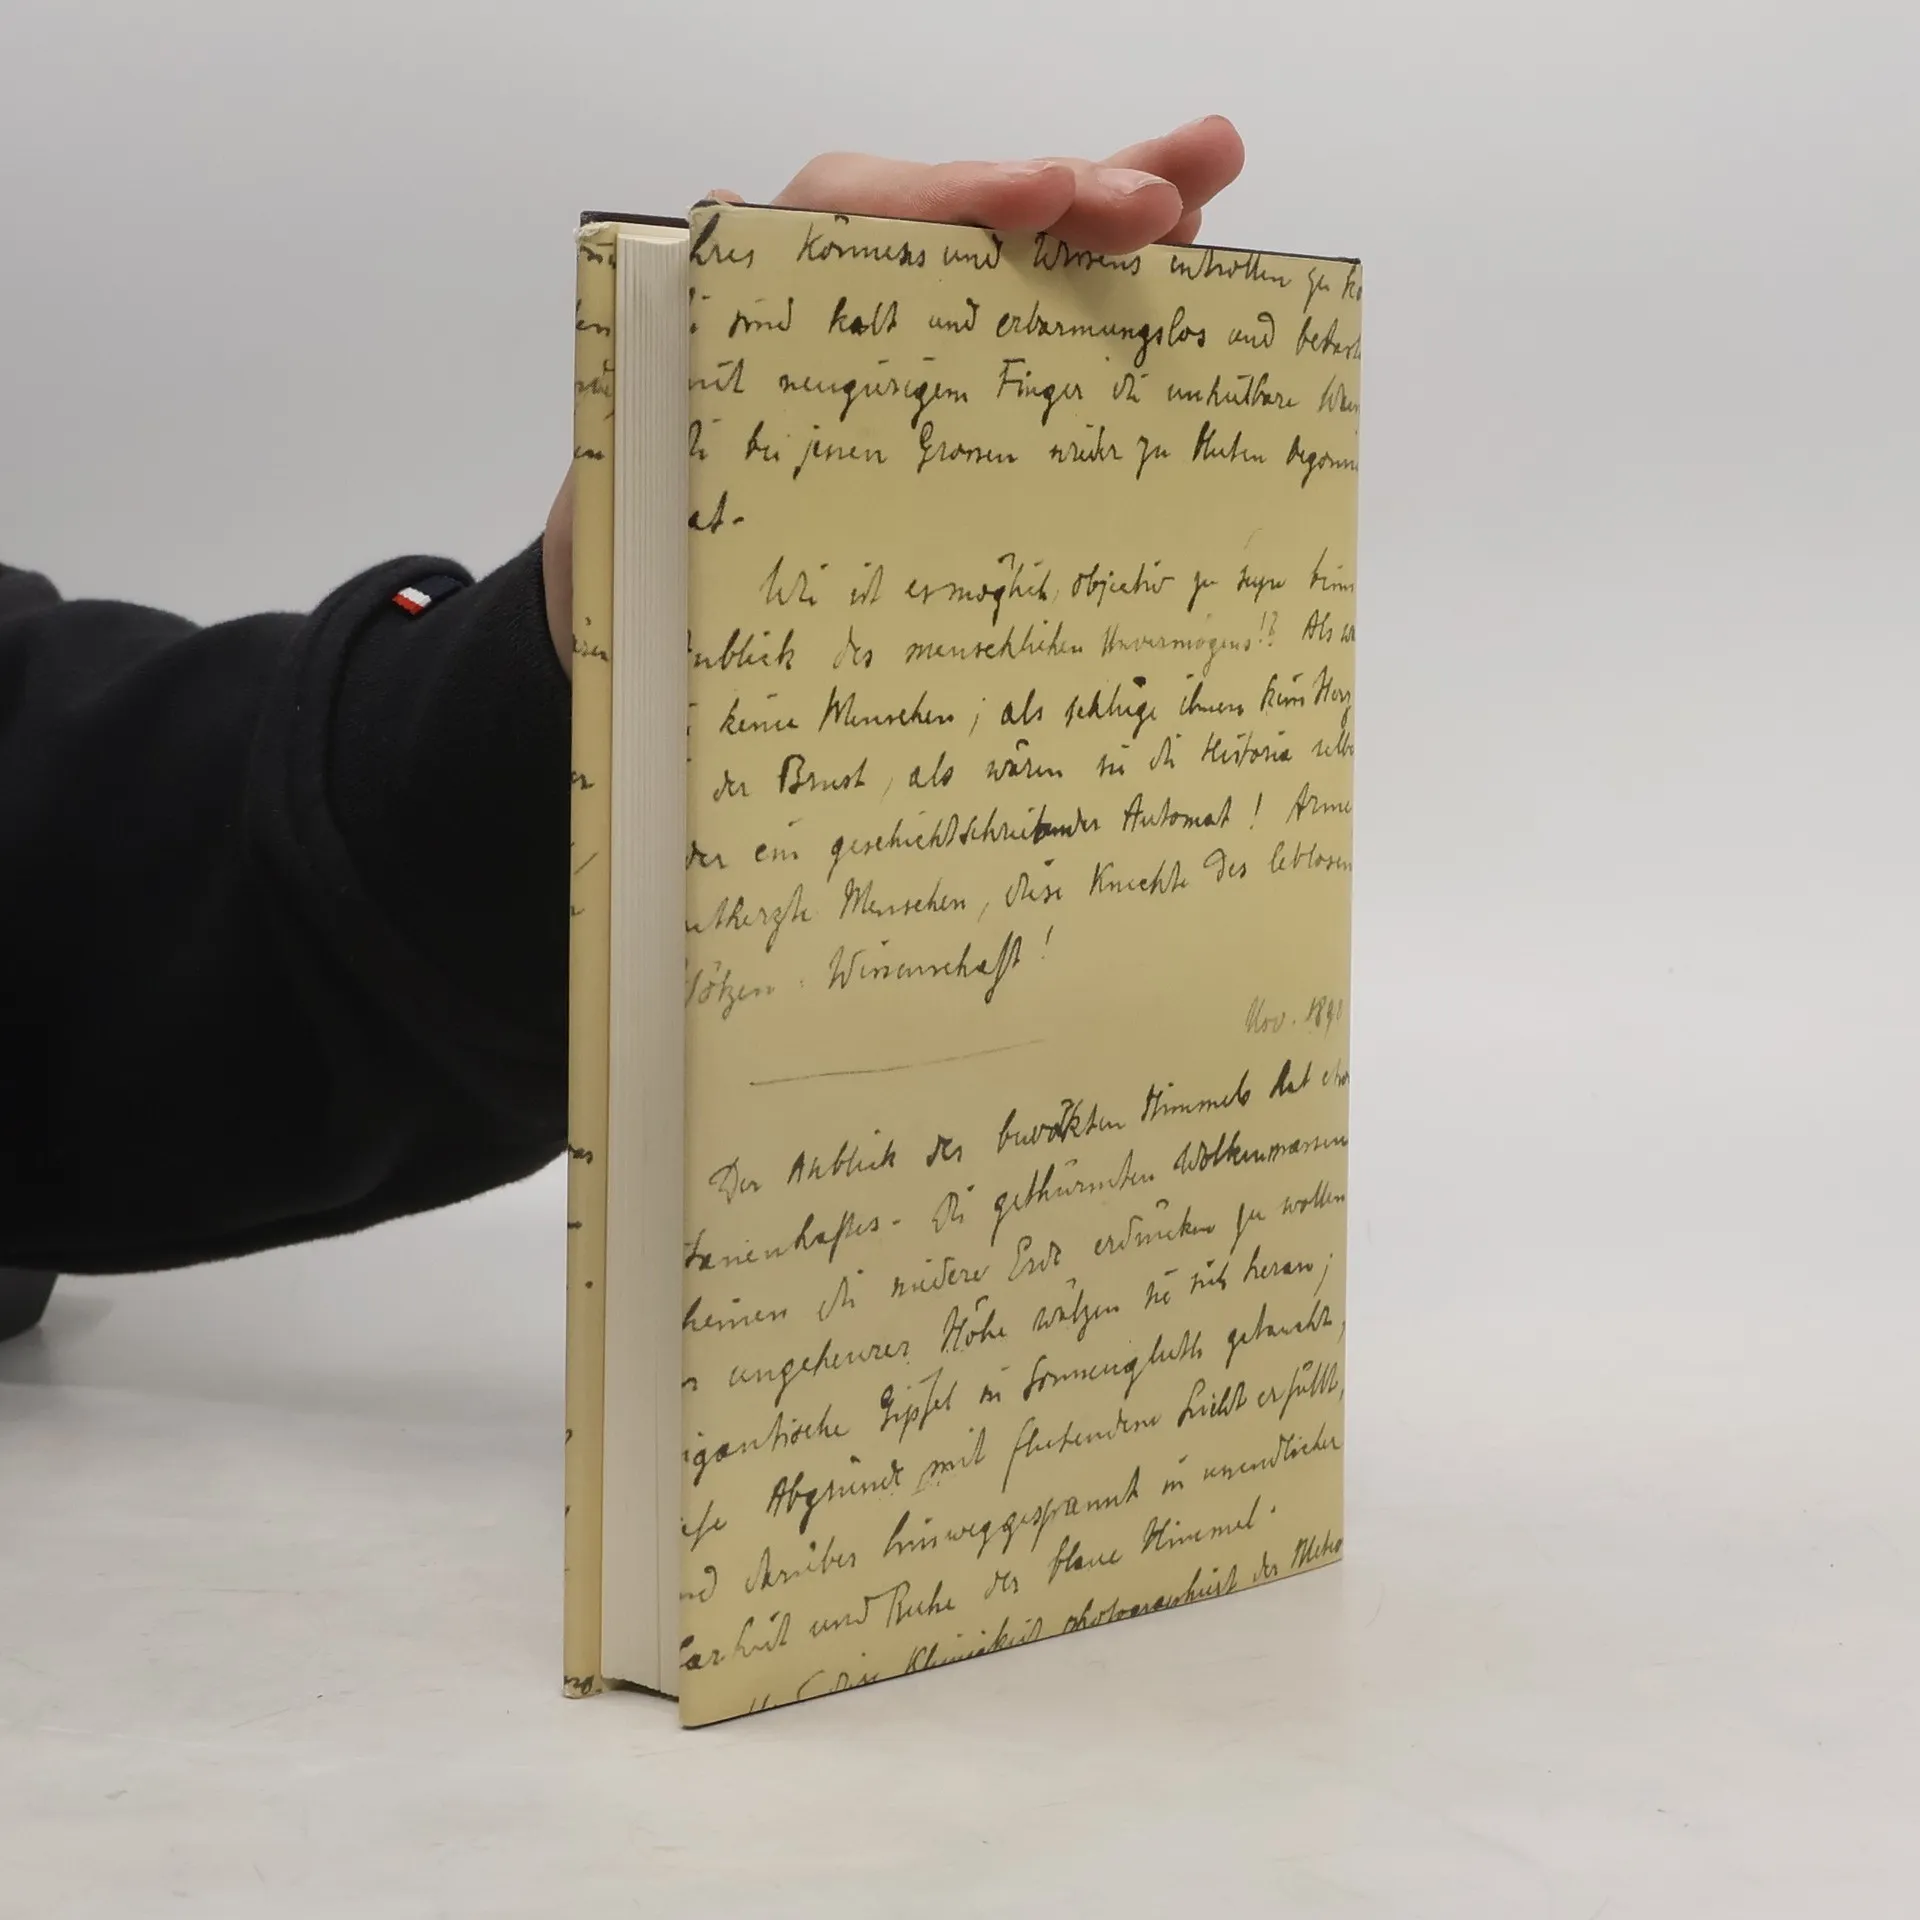 hres Könnens und Wissens entrollen zu kö
i sind kalt und erbarmungslos und betast
mit neugirigem Finger di unheilbare Wun
di bei jenen Grossen wieder zu bluten begonne
at.
Wi ist es möglich, objectiv zu seyn beim
nblick des menschlichen Unvermögens!? Als wä
i keine Menschen; als schlüge ihnen kein Herz
der Brust, als wären sie di Historia selbs
der ein geschichtschreibender Automat! Arme
Menschen, diese Knechte des leblosen
ötzen: Wissenschaft!
Nov. 189
Der Anblick des bewölkten Himmels hat etwa
tanenhaftes. Di gethürmten Wolkenmassen
heinen di niedere Erde erdrücken zu wollen
ungeheurer Höhe wälzen sie sich heran;
igantische Gipfel in Sonnengluth getaucht,
efe Abgründe mit flutendem Licht erfüllt,
nd darüber hinweggespannt in unendlicher
larheit und Ruhe der blaue Himmel.
Kleinigkeit photographiert der Meteo